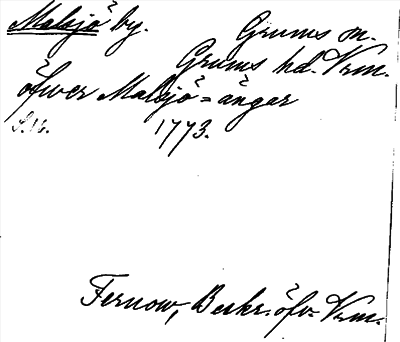 Malsjö by. Grums sn.
Grums hd. Vrm.
öfwer Malsjö=ängar
S. 16. 1773.
Fernow, Beskr. öfv. Vrm.